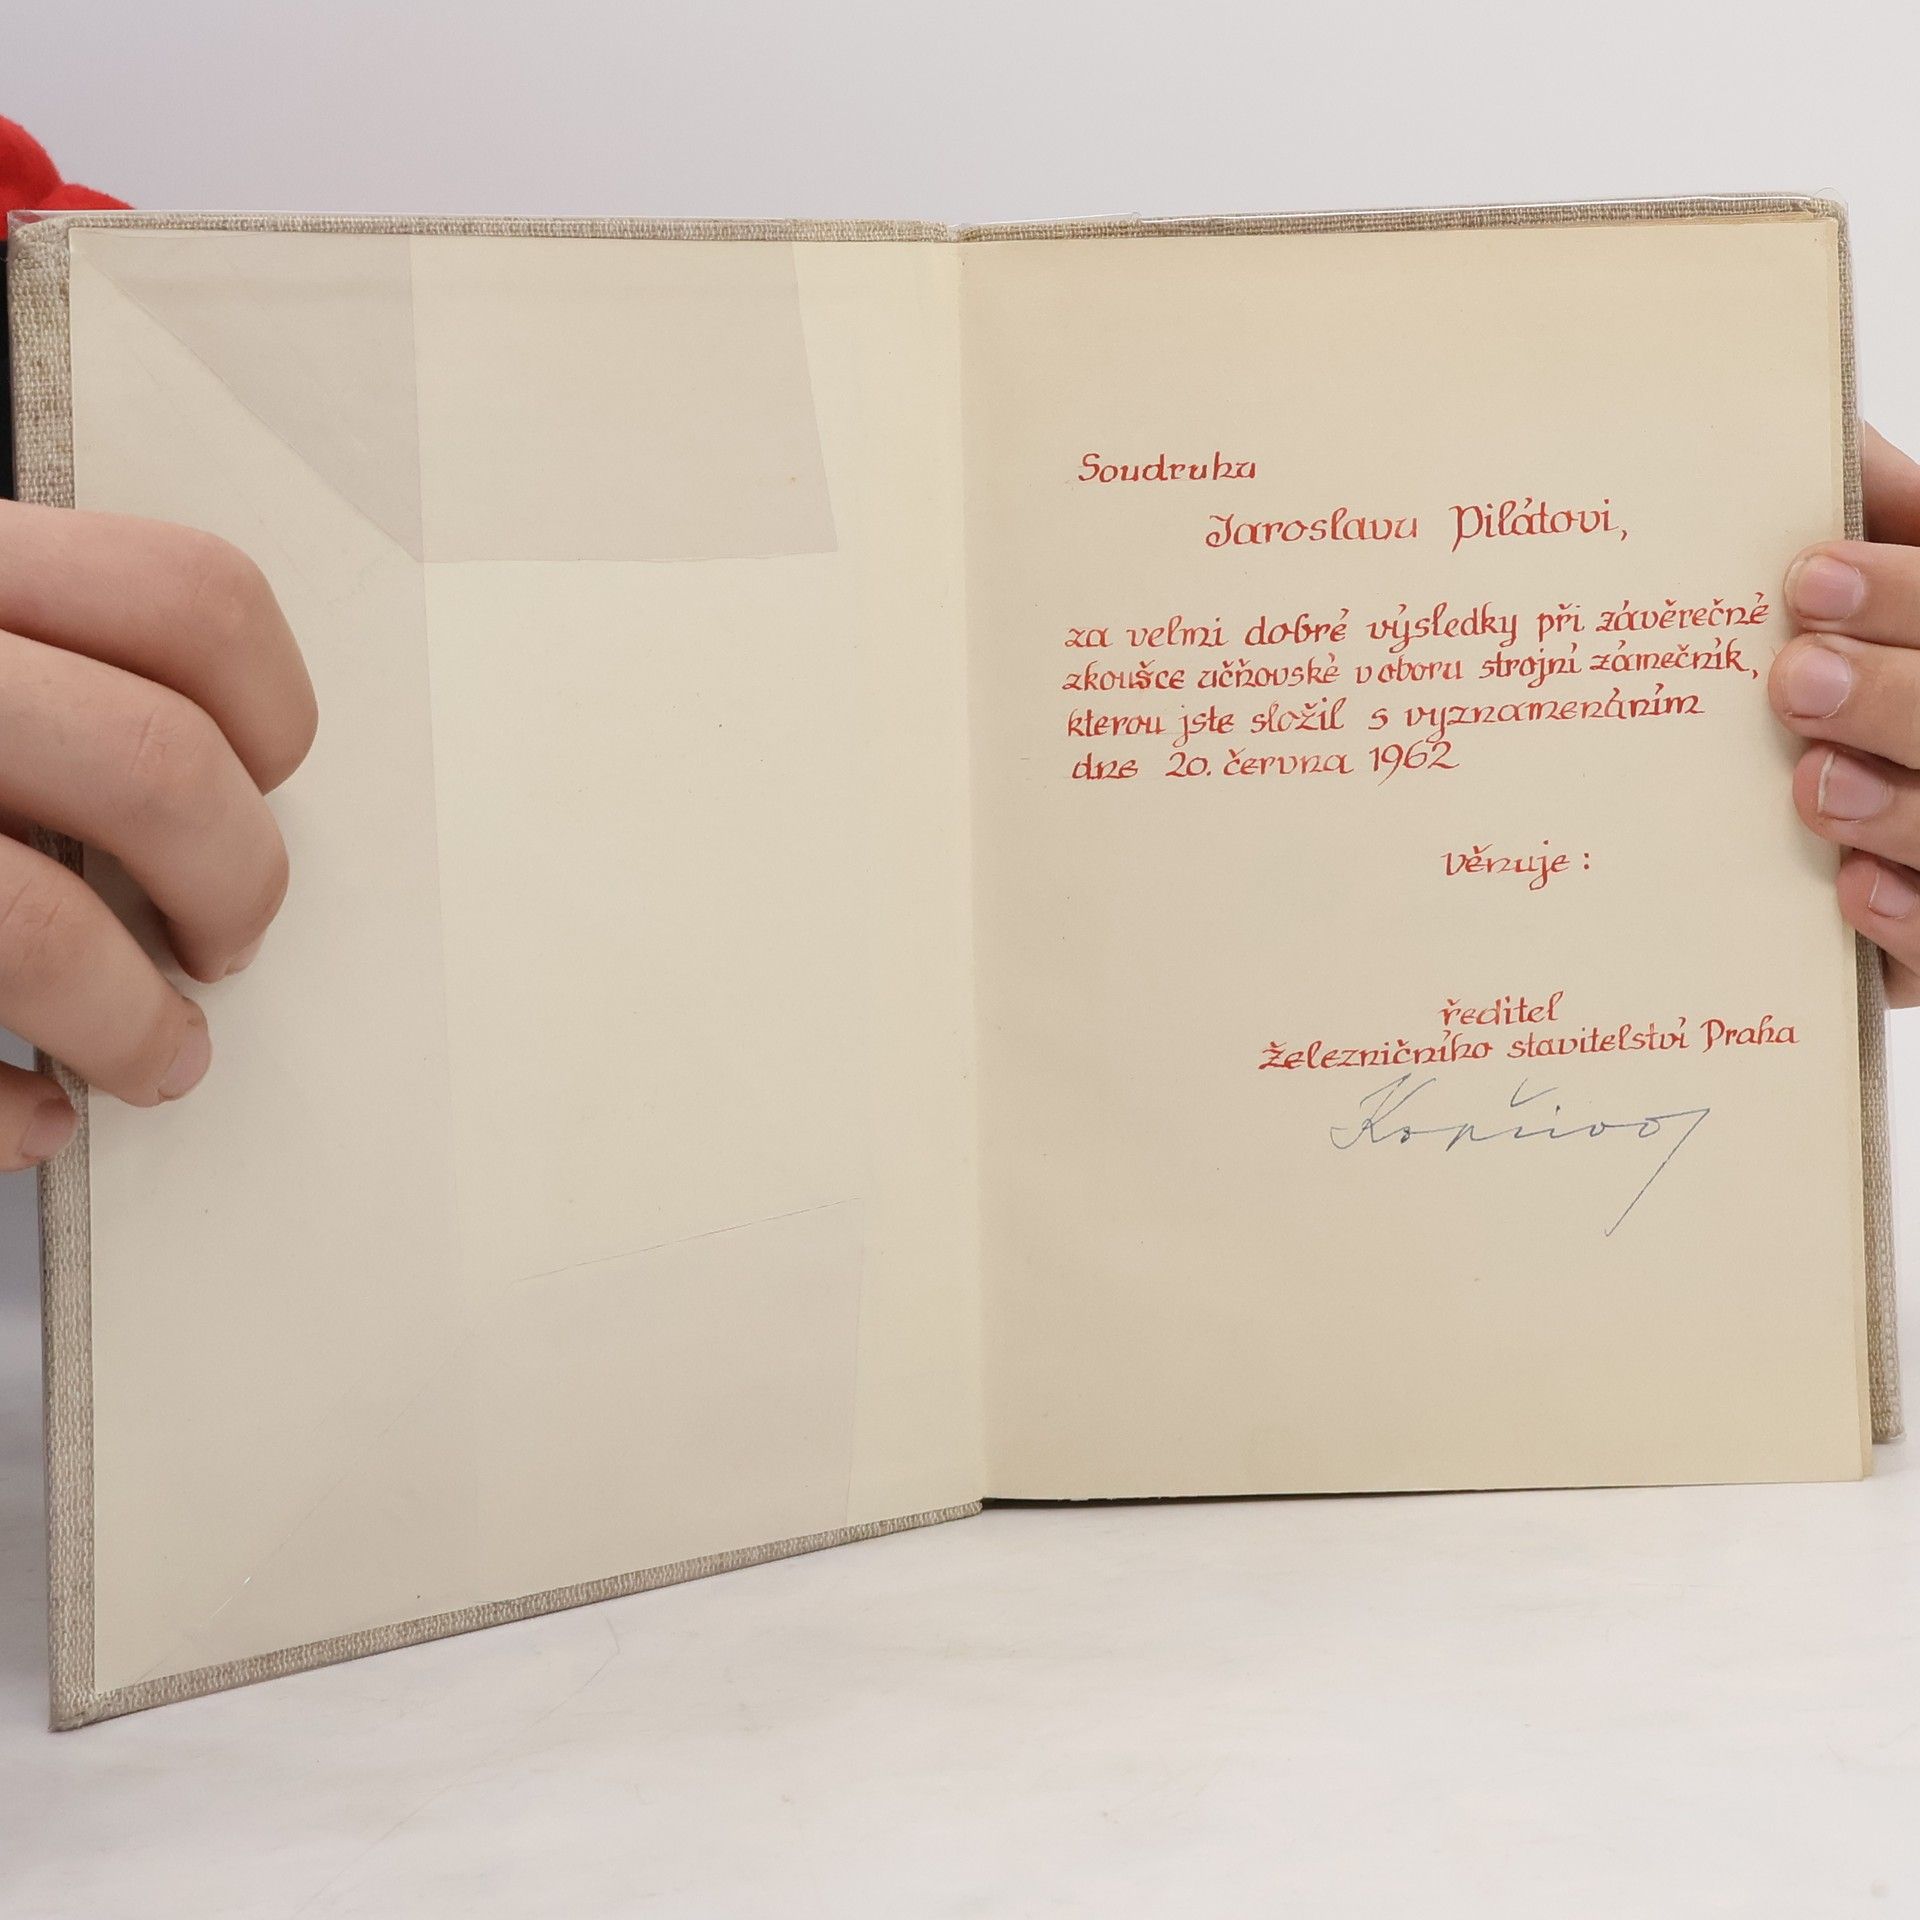 Soudruhu
Jaroslavu Pilátovi,
za velmi dobré výsledky při závěrečné
zkoušce učňovské v oboru strojní zámečník,
kterou jste složil s vyznamenáním
dne 20. června 1962
Věnuje:
ředitel
Železničního stavitelství Praha